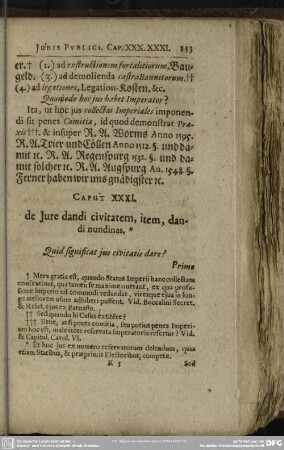 JURIS PUBLICI. CAP. XXX. XXXI. 153
er.† (2.) ad exstructionem fortalitiorum, Bau-
geld. (3.) ad demolienda castra Bannitorum.††
(4.) ad legationes, Legation-Kosten, &c.
Quomodo hoc jus habet Imperator?
Ita, ut hoc jus collectas Imperiales imponen-
di sit penes Comitia, id quod demonstrat Pra-
xis †††. & insuper R. A. Worms Anno 1595.
R. A. Trier und Cöllen Anno 1512. §. und da-
mit ꝛc. R. A. Regenspurg 1532. §. und da-
mit solcher ꝛc. R. A. Augspurg An. 1548. §.
Ferner haben wir uns gnädigster ꝛc.
CAPUT XXXI.
de Jure dandi civitatem, item, dan-
di nundinas. *
Quid significat jus civitatis dare?
Primo
† Mera gratia est, quando Status Imperii hanc collectam
conferatione, qua tamen se maxime
sione Imperio nil commodi redundat,
ge meliorem usum adhiberi possent. Vid. Boccalini Secret.
& Relat. ejus ex Parnasso.
†† Sed quando hi Casus existêre?
††† Bene, at si penes comitia, seu potius penes Imperi-
um hoc est, num inter reservata Imperatoris refertur? Vid.
& Capitul. Carol. VI.
* Et hoc Jus ex numero reservatorum defendum, quia
etiam Statibus, & præprimis Electoribus, competit.
K 5 Sed